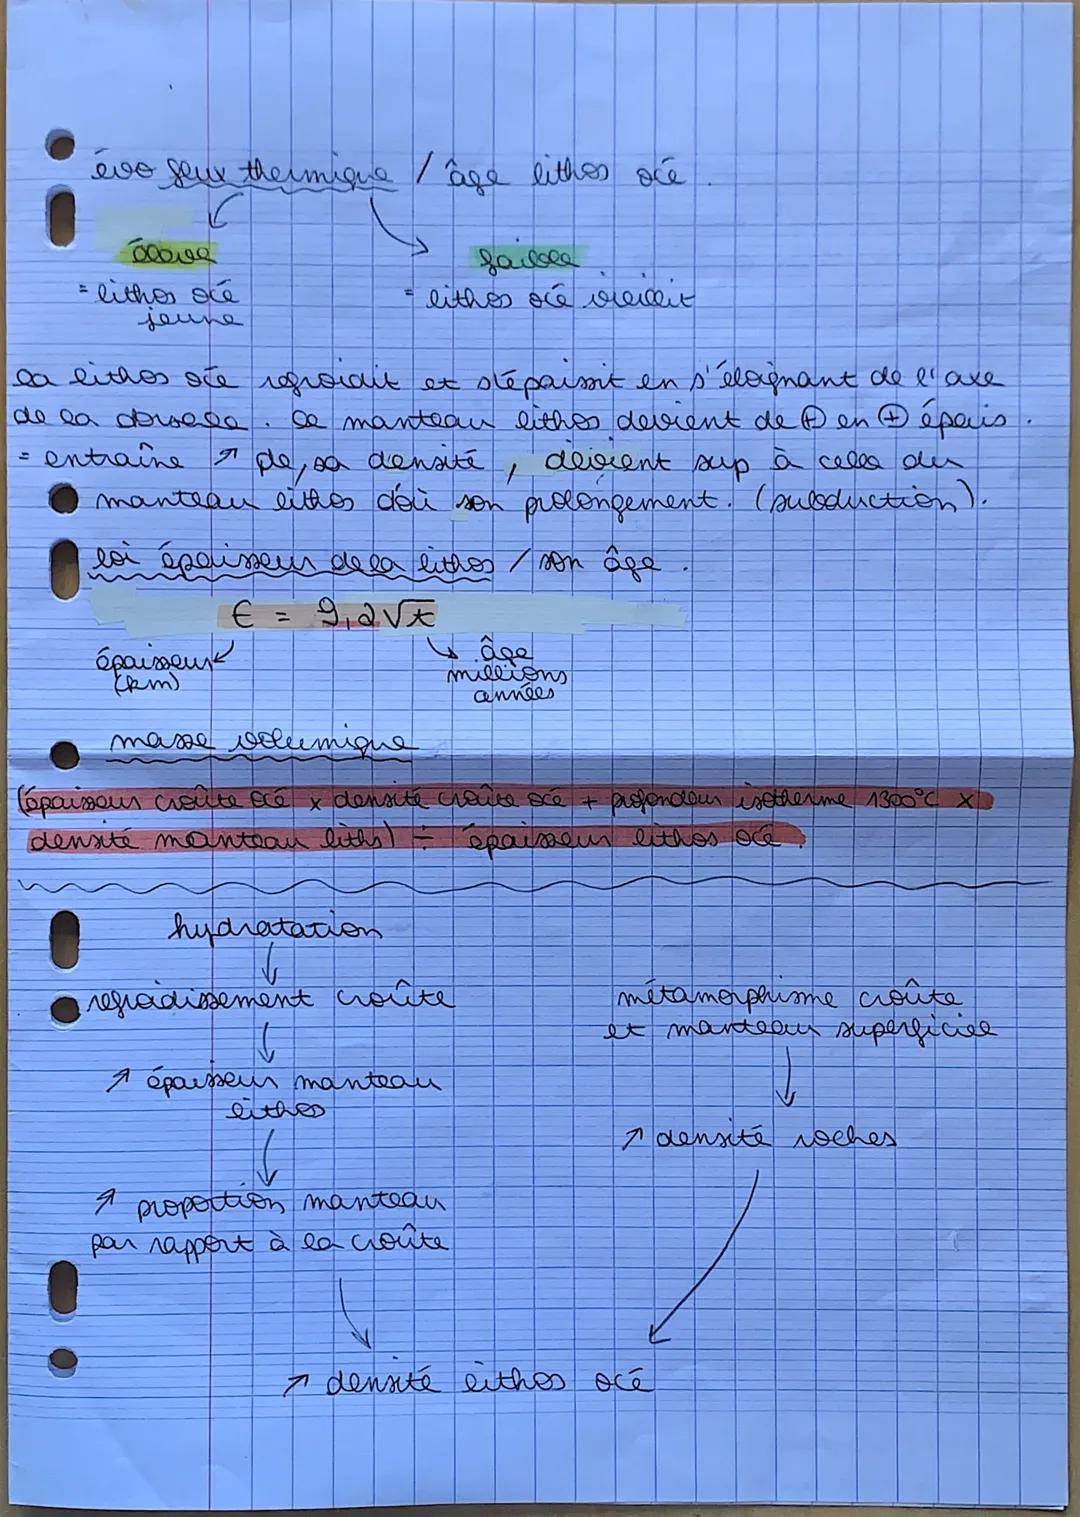 évo flux thermique / âge lithos océ.
élevé faible
= lithos océ = lithos océ vieillit
jeune
la lithos océ refroidit et s'épaissit en s'éloignant de l'axe
de la dorsale. Le manteau lithos devient de ⊕ en ⊕ épais.
= entraîne ↗ de sa densité, devient sup à celle du
manteau lithos d'où son prolongement. (subduction).
loi épaisseur de la lithos / son âge.
€ = 9,2√t
épaisseur (km) âge millions années
masse volumique
(épaisseur croûte océ x densité croûte océ + profondeur isotherme 1300°C x
densité manteau liths) ÷ épaisseur lithos océ.
hydratation
refroidissement croûte
↗ épaisseur manteau
lithos
↗ proportion manteau
par rapport à la croûte
métamorphisme croûte
et manteau superficiel
↗ densité roches
↗ densité lithos océ